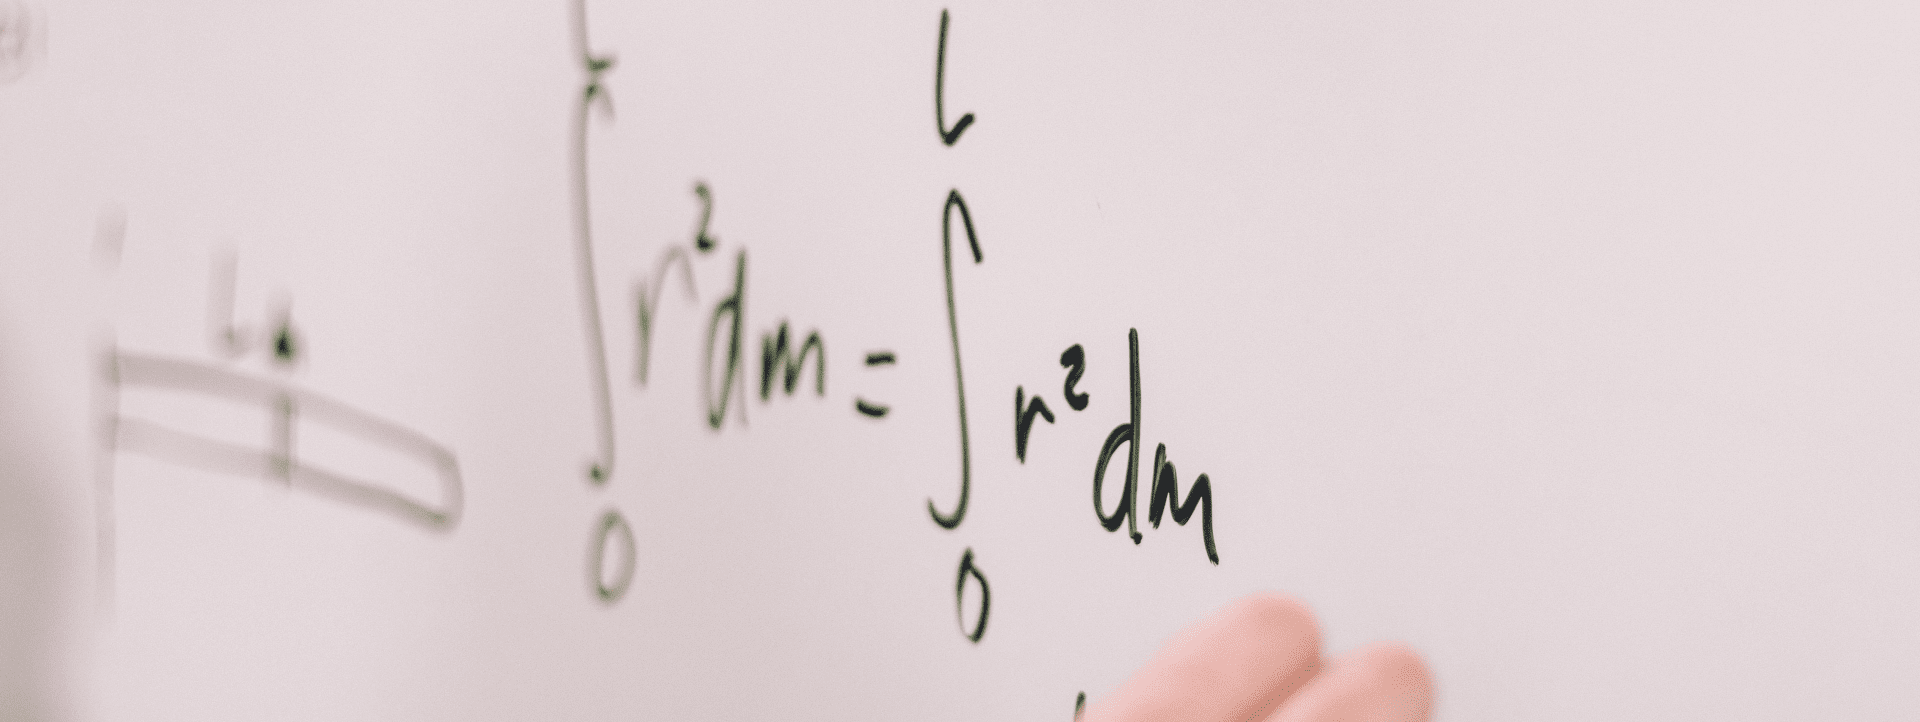 L
∫₀ᴸ r² dm = ∫₀ᴸ r² dm